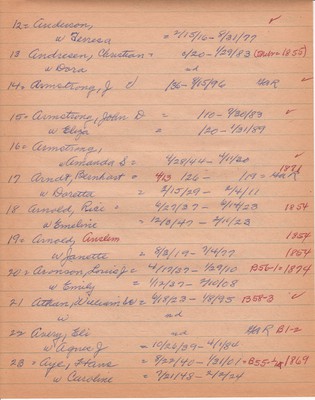 12 = Anderson,
w Teresa = 2/15/16 - 8/31/77
13 Andresen, Christian = 2/20 - 1/29/83 1855)
w Dora = nd
14 = Armstrong, J 1/36 - 9/15/96 GAR
15 = Armstrong, John D = 1/10 - 9/20/83
w Eliza = 1/20 - 2/21/89
16 = Armstrong,
Amanda S = 4/28/44 - 7/11/20
17 Arndt, Bernhart = 9/13 1/26 - 1/09 = GAR 1881
w Doretta = 2/15/29 - 2/4/11
18 Arnold, = 6/29/27 - 1854
w Emeline = 12/3/47 - 2/11/23
19 = Arnold, Anselm 1854
w Janette = 8/2/19 - 7/4/77 1854
20 = Aronson, Louis J = 4/19/27 - 1/29/10 B56-1 = 1874
w Emily = 1/12/37 - 2/10/08
21 Athan, William W = 6/18/23 - 4/8/95 B58-3
w nd
22 Avery, Eli nd GAR B1-2
w Agnes J = 10/26/39 - 4/1/84
23 = Aye, Hans = 8/22/40 - 3/31/01 = B55- 1869
w Caroline = 7/21/48 - 2/2/24